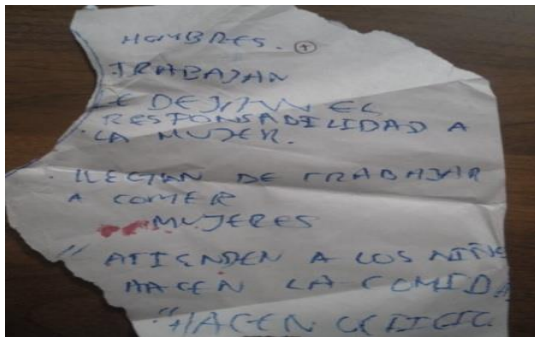 HOMBRES.
TRABAJAN
LE DEJAN EL
RESPONSABILIDAD A
LA MUJER.
LLEGAN DE TRABAJAR
A COMER
MUJERES
" ATIENDEN A LOS NIÑE
HACEN LA COMIDA
"HACEN